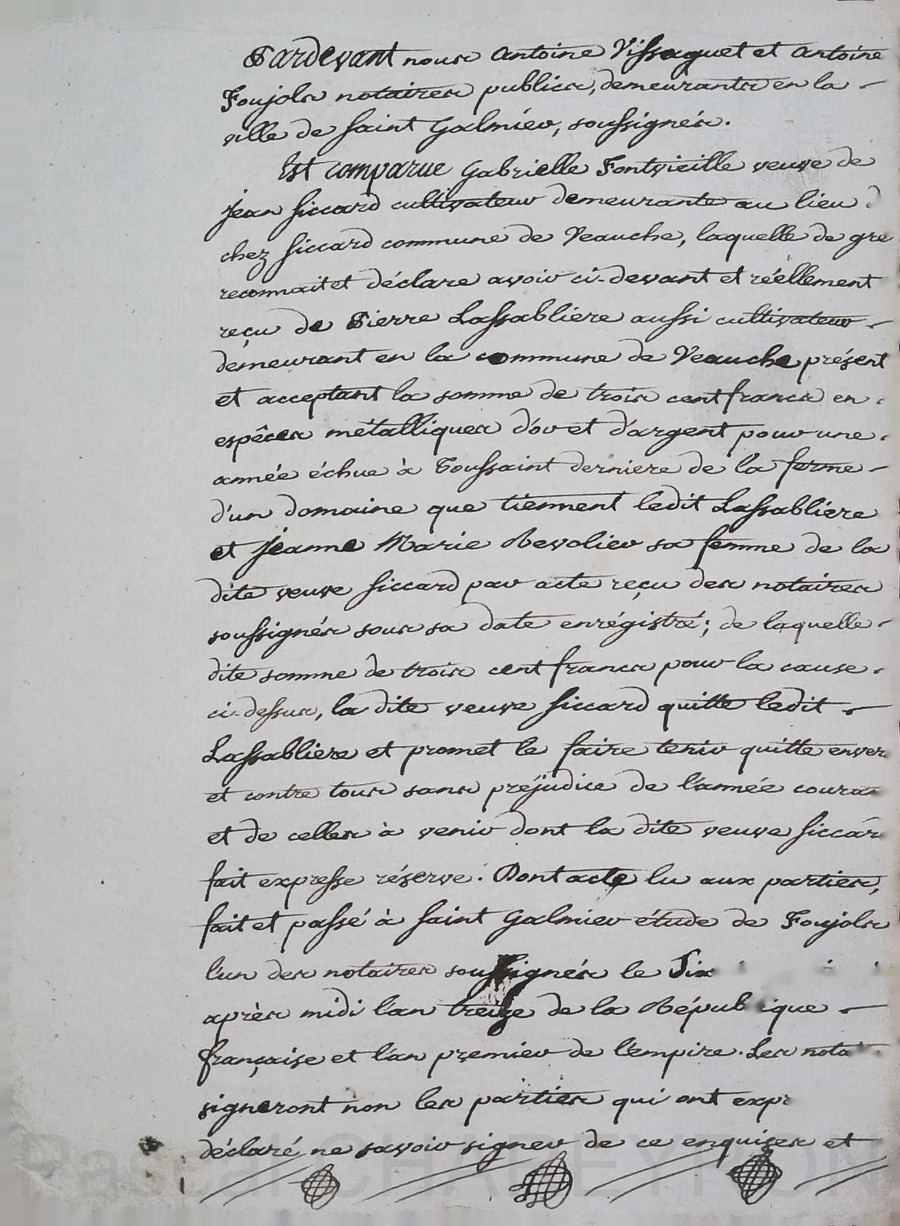 Pardevant nous Antoine Vissaguet et Antoine
Foujols notaires publics, demeurants en la
ville de Saint Galmier, soussignés.
Est comparue Gabrielle Fontvieille veuve de
Jean Siccard cultivateur demeurante au lieu d
chez Siccard commune de Veauche, laquelle de gre
reconnait et déclare avoir ci-devant et réellement
reçu de Pierre Lassabliere aussi cultivateur
demeurant en la commune de Veauche présent
et acceptant la somme de trois cent francs en
espêces métalliques d'or et d'argent pour une
année échue à Toussaint derniere de la ferme
d'un domaine que tiennent ledit Lassabliere
et Jeanne Marie Revolier sa femme de la
dite veuve Siccard par acte reçu des notaires
soussignés sous sa date enrégistré; de laquelle
dite somme de trois cent francs pour la cause
ci-dessus, la dite veuve Siccard quitte ledit
Lassabliere et promet le faire tenir quitte enver
et contre tous sans préjudice de l'année couran
et de celles à venir dont la dite veuve Siccar
fait expresse réserve. Dont acte lu aux parties,
fait et passé à Saint Galmier étude de Foujols
l'un des notaires soussignés le Six
après midi l'an treize de la Répub ique
française et l'an premier de l'empire. Les nota
signeront non les parties qui ont expr
déclaré ne savoir signer de ce enquises et
Pascal CHALEYRON